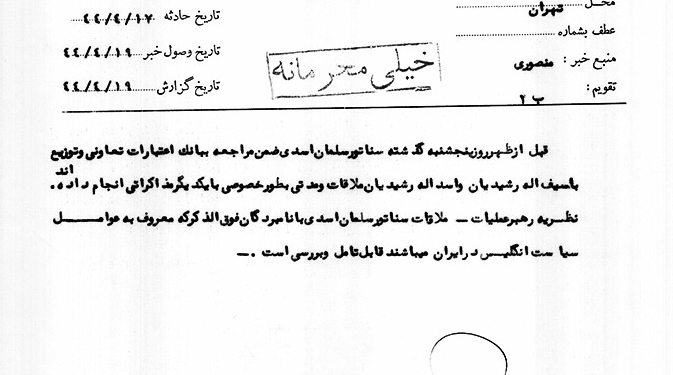 محل تهران
تاریخ حادثه ۴۴/۴/۱۷
عطف بشماره
تاریخ وصول خبر ۴۴/۴/۱۹
منبع خبر : منصوری
تاریخ گزارش ۴۴/۴/۱۹
تقویم : ب ۲
خیلی محرمانه
قبل از ظهر روز پنجشنبه گذشته سناتور سلمان اسدی ضمن مراجعه ببانک اعتبارات تعاونی و توزیع
با سیف اله رشیدیان و اسد اله رشیدیان ملاقات و مدتی بطور خصوصی با یکدیگر مذاکراتی انجام داده‌اند .
نظریه رهبر عملیات – ملاقات سناتور سلمان اسدی با نامبردگان فوق الذکر که معروف به عوامل
سیاست انگلیس در ایران میباشند قابل تامل و بررسی است . –